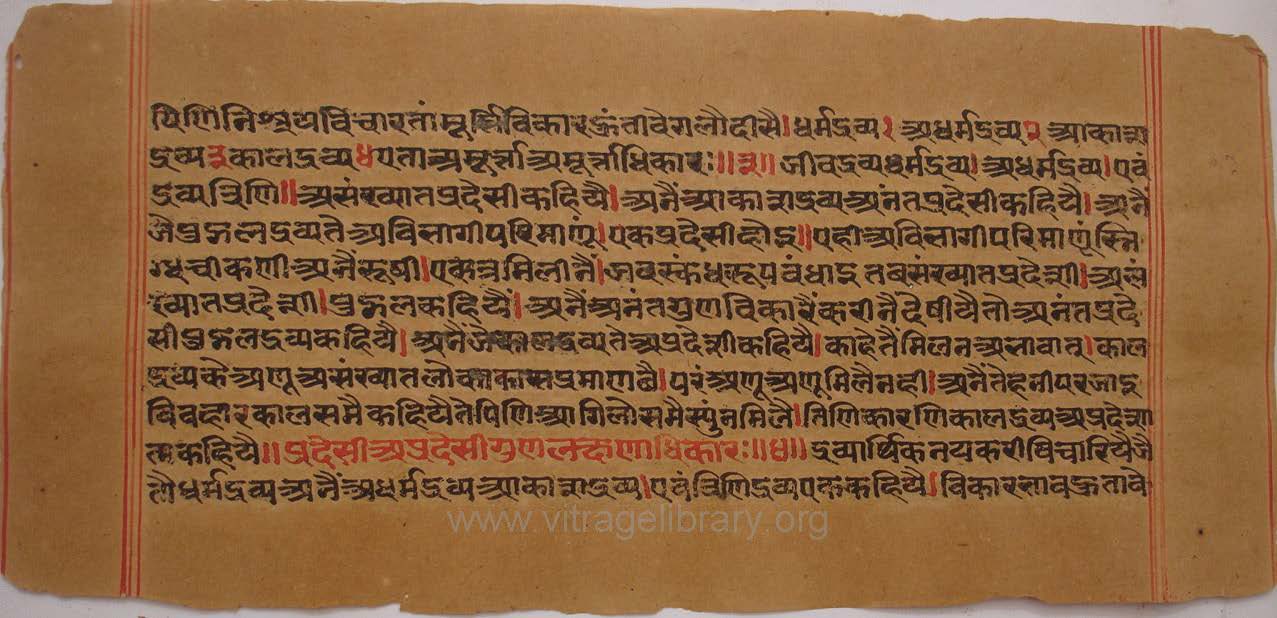 पिणिनिश्चयविचारतांमूर्त्तिविकारइंतावेगलौदीसै। धर्मद्रव्य१ अधर्मद्रव्य२ आकाश
द्रव्य३कालद्रव्य४एताअमूर्त्तअमूर्त्ताधिकारः॥३॥ जीवद्रव्यधर्मद्रव्य। अधर्मद्रव्य। एवं
द्रव्यत्रिणि॥ असंख्यातप्रदेसीकहियै। अनैंआकाशद्रव्यअनंतप्रदेसीकहियै। अनैं
जैपुद्गलद्रव्यतेअविभागीपरिमाणूं। एकप्रदेसीहोइ॥ एहीअविभागीपरिमाणूंस्नि
ग्धचीकणीअनैलूषी। एकत्रमिलीनैं। जवस्कंधरूपबंधाइ तवसंख्यातप्रदेशी। असं
ख्यातप्रदेशी। पुद्गलकहियैं। अनैअनंतगुणविकारैंकरीनैदेषीयैतौअनंतप्रदे
सीपुद्गलद्रव्यकहियै। अनैंजैकालद्रव्यतेअप्रदेशीकहियै। काहेतैंमिलनअभावात्। काल
द्रव्यकेअणूअसंख्यातलोकाकासप्रमाणछै। परंअणूअणूमिलैनही। अनैंतेहनीपरजाइ
बिवहारकालसमैकहियैतेपिणिआगिलौसमैस्युंनमिलै। तिणिकारणिकालद्रव्यअप्रदेशा
त्मकहियै॥ प्रदेसीअप्रदेसीगुणलक्षणाधिकारः॥४॥ द्रव्यार्थिकनयकरीविचारियैजै
तौधर्मद्रव्यअनैअधर्मद्रव्यआकाशद्रव्य। एवंत्रिणिद्रव्यएककहियै। विकारभावइतावे
www.vitragelibrary.org